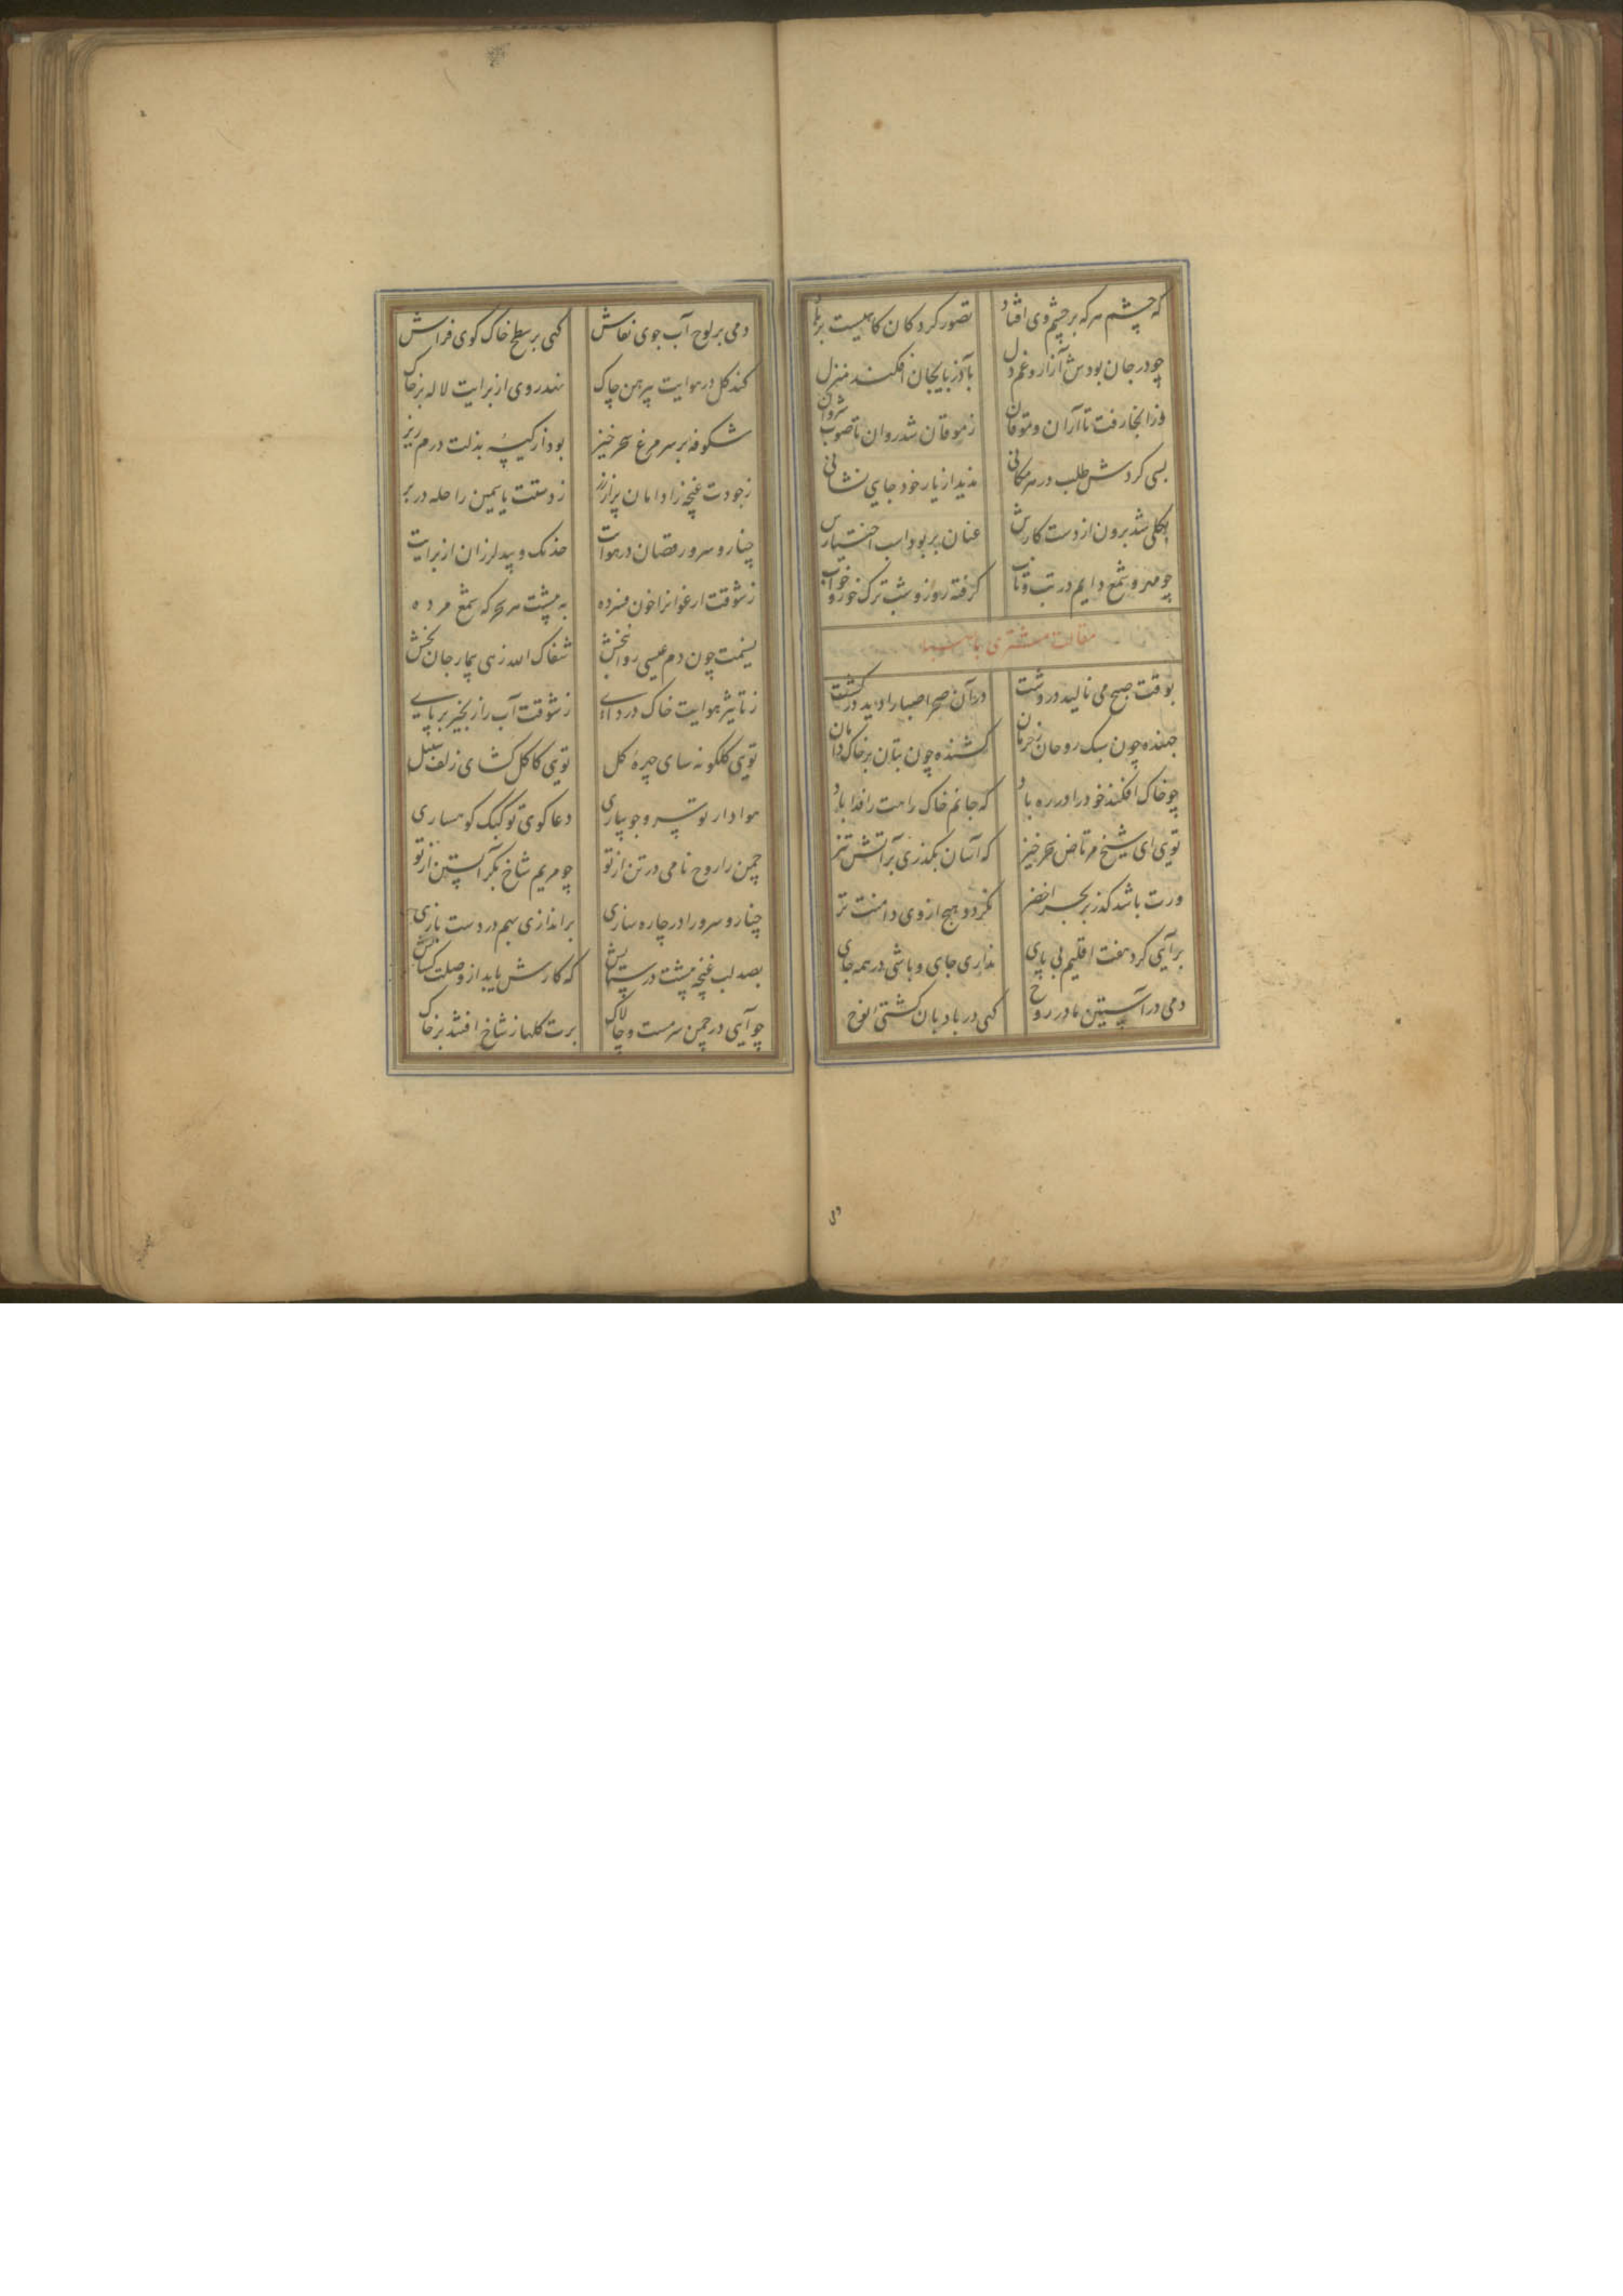 که چشم هر که بر چشم وی افتاد تصور کرد کان کاهیست بر باد
چو در جان بودش آزار و غم دل بآذربایجان افکند منزل
وز انجا رفت تا آران و موقان ز موقان شد روان تا صوب شروان
بسی کردش طلب در هر مکانی ندید از یار خود جایی نشانی
بکلی شد برون از دست کارش عنان بربود اسب اختیارش
چو مهر و شمع دایم در تب و تاب گرفته روز و شب ترک خور و خواب
مقالت مشتری با صبا
بوقت صبح می نالید در دشت در آن صحرا صبا را دید در گشت
جهنده چون سبک روحان ز حرمان کشنده چون بتان بر خاک دامان
چو خاک افکند خود را در ره باد که جانم خاک راهت را فدا باد
تویی ای شیخ مرتاض سحرخیز که آسان بگذری بر آتش تیز
ورت باشد گذر بر بحر اخضر نگردد هیچ از وی دامنت تر
برآیی گرد هفت اقلیم بی پای نداری جای و باشی در همه جای
دمی در آستین مادر روح کهی در بادبان کشتی نوح
دمی بر لوح آب جوی نقاش کهی بر سطح خاک کوی فراش
کند گل در هوایت پیرهن چاک نهد روی از برایت لاله بر خاک
شکوفه بر سر مرغ سحرخیز بود از کیسهٔ بذلت درم ریز
ز جودت غنچه را دامان پر از زر ز دستت یاسمین را حله در بر
چنار و سرو رقصان در هوایت خدنک و بید لرزان از برایت
ز شوقت ارغوان را خون فسرده به پیشت هر سحرکه شمع مرده
نسیمت چون دم عیسی روانبخش شفاک الله زهی بیمار جان بخش
ز تاثیر هوایت خاک در وای ز شوقت آب را زنجیر بر پای
تویی کلکونه سای چهرهٔ کل تویی کاکل کشای زلف سنبل
هوادار تو سرو جویباری دعاکوی تو کبک کوهساری
چمن را روح نامی در تن از تو چو مریم شاخ بکر آبستن از تو
چنار و سرو را در چاره سازی براندازی بهم در دست بازی
بصد لب غنچه پیشت در ستایش که کارش یابد از وصلت کشایش
چو آیی در چمن سرمست و چالاک برت کلها ز شاخ افتند بر خاک